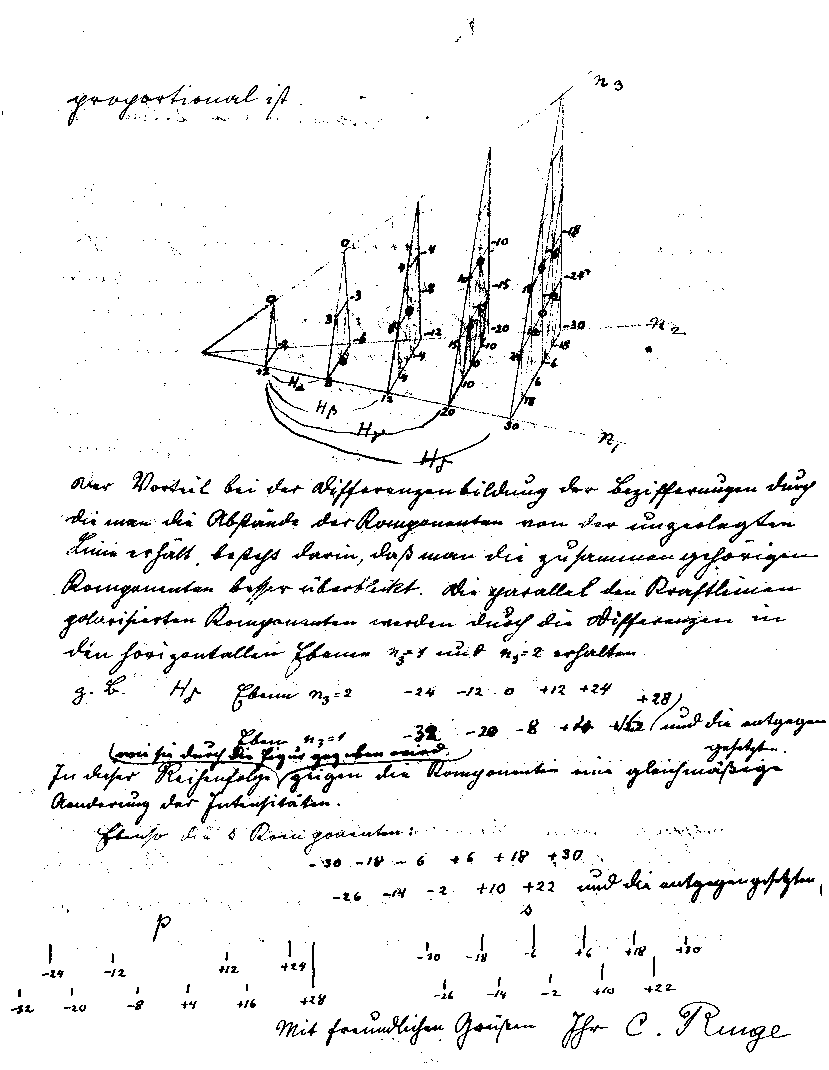 proportional ist
n3
0
0
-4
-10
-18
-3
3
-8
10
-15
-24
-6
-12
-20
-30
+2
8
12
20
30
4
10
6
18
Hα
Hβ
Hγ
Hδ
n2
n1
Der Vorteil bei der Differenzenbildung der Bezifferungen durch
die man die Abstände der Komponenten von der unzerlegten
Linie erhält, besteht darin, daß man die zusammen gehörigen
Komponenten besser überblickt. Die parallel den Kraftlinien
polarisierten Komponenten werden durch die Differenzen in
den horizontallen Ebenen n3=1 und n3=2 erhalten
z. B. Hδ Ebene n3=2 -24 -12 0 +12 +24
+28)
Eben n3=1 -32 -20 -8 (und die entgegen
gesetzten.
(wie sie durch die Figur gegeben wird)
In dieser Reihenfolge zeigen die Komponenten eine gleichmäßige
Aenderung der Intensitäten.
Ebenso die s Komponenten:
-30 -18 -6 +6 +18 +30
-26 -14 -2 +10 +22 und die entgegengesetzten,
p
s
-24 -12 +12 +24
-32 -20 -8 +4 +16 +28
-30 -18 -6 +6 +18 +30
-26 -14 -2 +10 +22
Mit freundlichen Grüßen Ihr C. Runge